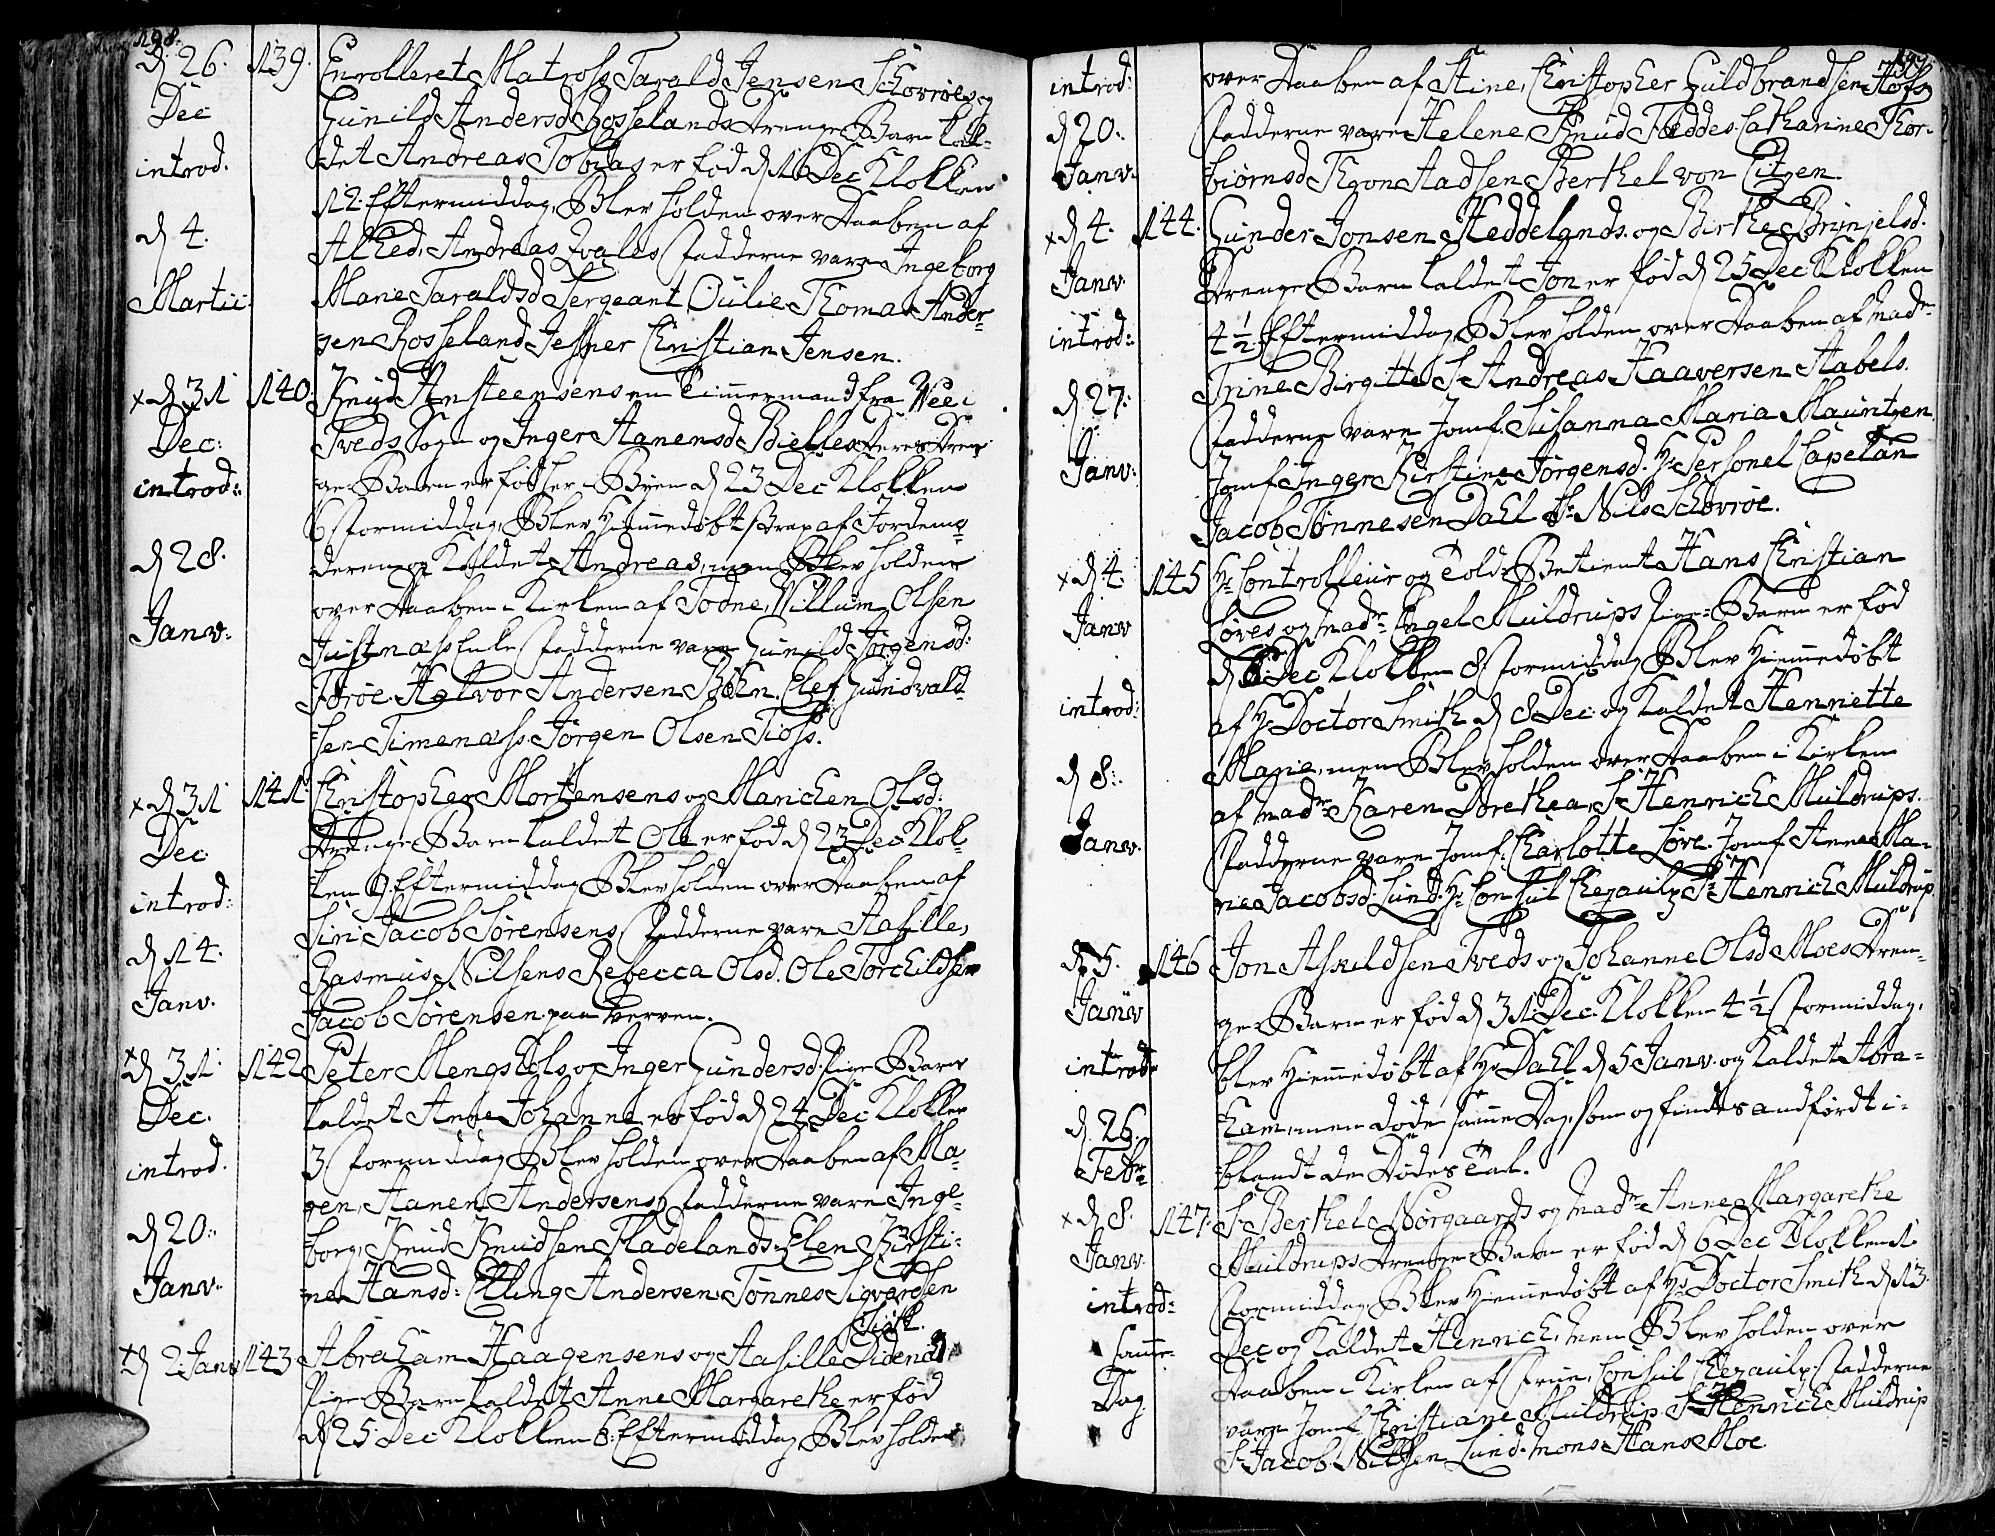 198.
d 26. Dec introd. d 4. Martii
139.
Enrolleret Matross Tarald Jensen Schovrøes og
Gunild Andersd Rosselands Drenge Barn kal-
det Andreas Tobias er fød d 16 Dec Klokken
12. Eftermiddag, Blev holden over Daaben af
Alhed, Andreas Qvales Fadderne vare Ingeborg
Marie Taraldsd Sergeant Oulie Thomas Ander-
sen Rosseland Jesper Christian Jensen.
x d 31 Dec: introd: d 28. Janv:
140
Knud Ansteensens en Timmermand fra Wee i
Tveds Sogn og Inger Aanensd Bielles deres Dren-
ge Barn er fød her i Byen d 23 Dec Klokken
6 Formiddag, Blev Hiemmedøbt strax af Jordemo-
deren og Kaldet Andreas, men Blev holden
over Daaben i Kirken af Todne, Villum Olsen
Justnæss Enke Fadderne vare Gunild Jørgensd:
Torøe. Halvor Andersen Bøen. Elef Gundvald-
sen Timenæss. Jørgen Olsen Tioss.
x d 31 Dec introd: d 14. Janv.
141
Christopher Mortensens og Marichen Olsd:
Drenge Barn kaldet Ole er fød d 23 Dec Klok-
ken 9 Eftermiddag Blev holden over Daaben af
Siri Jacob Sørensens, Fadderne vare Aasille,
Rasmus Nilsens Rebecca Olsd. Ole Torchildsen
Jacob Sørensen paa Verven.
x d 31 Dec. introd. d 20: Janv.
142
Peter Mengshols og Inger Gundersd. Pige Barn
kaldet Anne Johanne er fød d 24 Dec Klokken
3 Formiddag Blev holden over Daaben af Ma-
gen, Aanen Andersens Fadderne vare Inge-
borg, Knud Knudsen Fladelands Elen Kirsti-
ne Hansd: Elling Andersen Tønnes Sigvardsen
x d 2 Janv
143
Abraham Haagensens og Aasille Didericks
Pige Barn kaldet Anne Margarethe er fød
d 25 Dec Klokken 8 Eftermiddag Blev holden
199.
introd: d 20: Janv.
over Daaben af Stine, Christopher Guldbrandsen Hofs
Fadderne vare Helene, Knud Fæddes Catharine Thor-
biørnsd Tygon Aadsen Berthel von Citzen.
x d 4. Janv. introd: d 27: Janv:
144.
Gunder Jonsen Heddelands og Birthe Brynjelsd.
Drenge Barn kaldet Jon er fød d 25 Dec Klokken
4 1/2 Eftermiddag Blev holden over Daaben af Madm
Trine Birgitte Sr Andreas Haaversen Stabels.
Fadderne vare Jomf. Susanna Maria Mauritzen
Jomf Inger Kirstine Jørgensd. Hr Personel Capelan
Jacob Tønnesen Dahl Sr Nils Schovrøe.
x d 4. Janv introd: d 8: Janv.
145
Hr Controlleur og Told Betient Hans Christian
Løves og Madm Engel Muldrups Pige Barn er fød
d 6 Dec Klokken 8 Formiddag Blev Hiemmedøbt
af Hr Doctor Smith d 8 Dec og Kaldet Henriette
Marie, men Blev holden over Daaben i Kirken
af Madm Karen Dorethea, Sr Henrich Muldrups.
Fadderne vare Jomf. Charlotte Løve. Jomf Anne Ma-
rie Jacobsd: Lund. Hr Consul Chezaulx Sr Henrich Muldrup
d 5. Janv introd: d. 26. Febr
146
Jon Askildsen Tveds og Johanne Olsd Moes Dren-
ge Barn er fød d 31 Dec. Klokken 4 1/2 Formiddag,
blev Hiemmedøbt af Hr Dahl d 5 Janv. og Kaldet Abra-
ham, men døde samme Dag, som og findes anført i-
blandt de Dødes Tal.
x d 8. Janv. introd: samme Dag
147.
Sr Berthel Nørgaards og Madm Anne Margarethe
Muldrups Drenge Barn er fød d 6 Dec Klokken 1
Formiddag, Blev Hiemmedøbt af Hr Doctor Smith d 13.
Dec og Kaldet Henrich, men Blev holden over
Daaben i Kirken af Frue, Consul Chezaulx. Fadderne
vare Jomf Christiane Muldrup Sr Henrich Muldrup
Sr Jacob Nilssen Lund. Mons Hans Moe